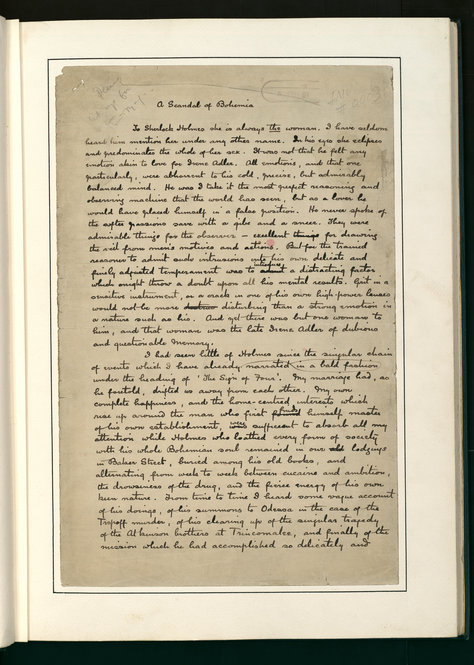 A Scandal of Bohemia
To Sherlock Holmes she is always the woman. I have seldom
heard him mention her under any other name. In his eyes she eclipses
and predominates the whole of her sex. It was not that he felt any
emotion akin to love for Irene Adler. All emotions, and that one
particularly, were abhorrent to his cold, precise, but admirably
balanced mind. He was I take it the most perfect reasoning and
observing machine that the world has seen, but as a lover he
would have placed himself in a false position. He never spoke of
the softer passions save with a gibe and a sneer. They were
admirable things for the observer - excellent things for drawing
the veil from men's motives and actions. But for the trained
reasoner to admit such intrusions into his own delicate and
finely adjusted temperament was to admit introduce a distracting factor
which might throw a doubt upon all his mental results. Grit in a
sensitive instrument, or a crack in one of his own high power lenses
would not be more disturbing than a strong emotion in
a nature such as his. And yet there was but one woman to
him, and that woman was the late Irene Adler of dubious
and questionable memory.
I had seen little of Holmes since the singular chain
of events which I have already narrated in a bald fashion
under the heading of 'The Sign of Four'. My marriage had, as
he foretold, drifted us away from each other. My own
complete happiness, and the home-centred interests which
rise up around the man who first found finds himself master
of his own establishment, were sufficient to absorb all my
attention while Holmes who loathed every form of society
with his whole Bohemian soul remained in our old lodgings
in Baker Street, buried among his old books, and
alternating from week to week between cucaine and ambition,
the drowsiness of the drug, and the fierce energy of his own
keen nature. From time to time I heard some vague account
of his doings, of his summons to Odessa in the case of the
Trepoff murder, of his clearing up of the singular tragedy
of the Atkinson brothers at Trincomalee, and finally of the
mission which he had accomplished so delicately and